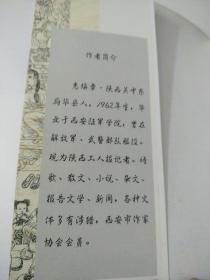 作者简介
惠焕章·陕西关中东
府华县人。1962年生，毕
业于西安陆军学院，曾在
解放军、武警部队服役。
现为陕西工人报记者。诗
歌、散文、小说、杂文、
报告文学、新闻，各种文
体多有涉猎，西安市作家
协会会员。